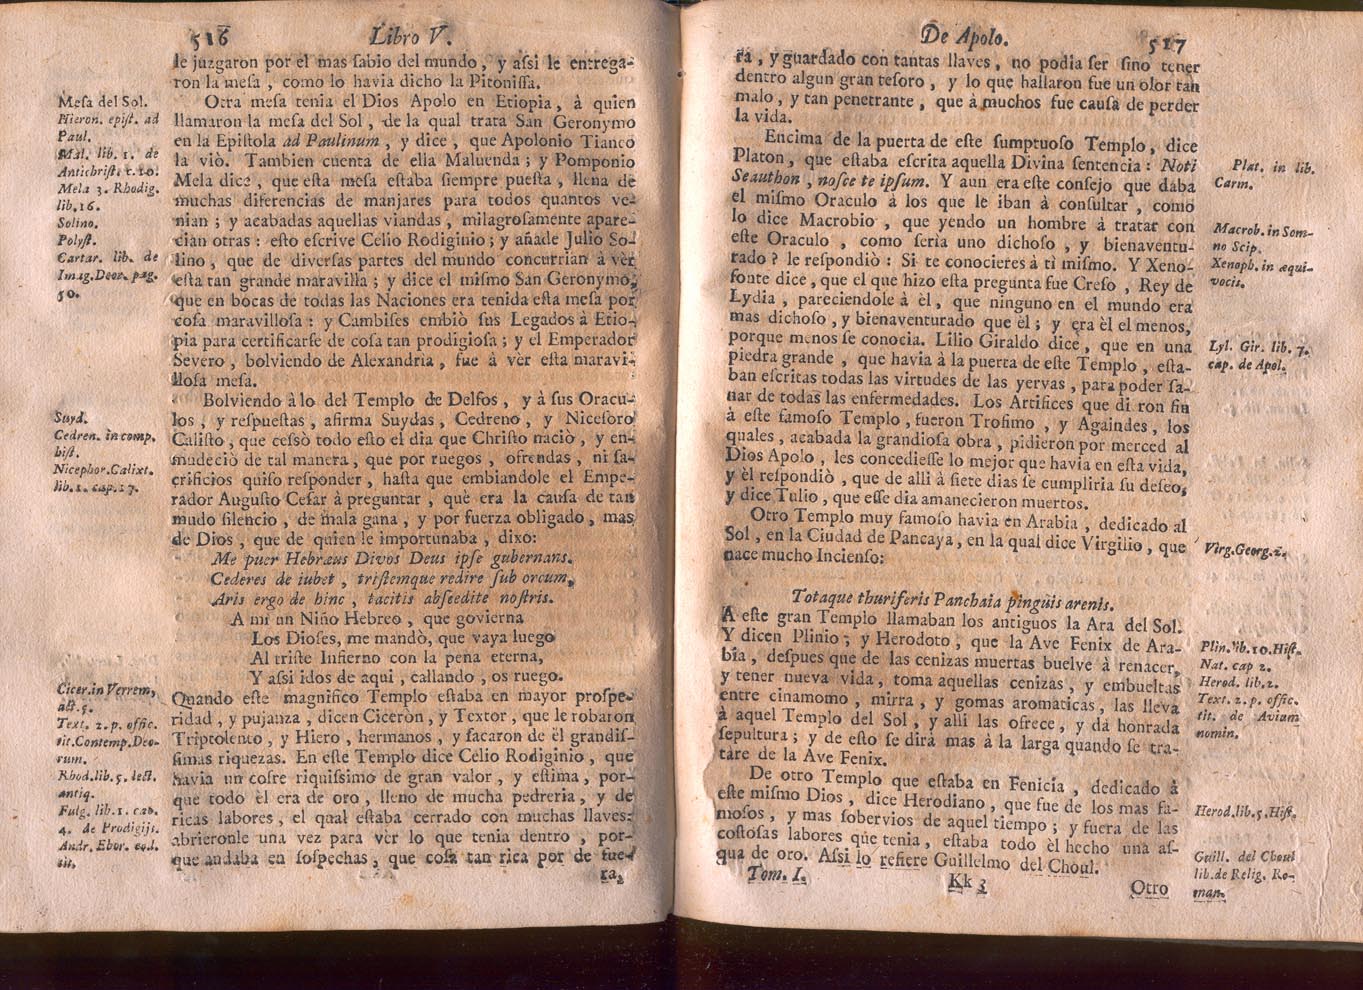 516 Libro V.
le juzgaron por el mas sabio del mundo, y assi le entrega-
ron la mesa, como lo havia dicho la Pitonissa.
Otra mesa tenia el Dios Apolo en Etiopia, à quien
llamaron la mesa del Sol, de la qual trata San Geronymo
en la Epistola ad Paulinum, y dice, que Apolonio Tianeo
la viò. Tambien cuenta de ella Maluenda; y Pomponio
Mela dice, que esta mesa estaba siempre puesta, llena de
muchas diferencias de manjares para todos quantos ve-
nian; y acabadas aquellas viandas, milagrosamente apare-
cian otras: esto escrive Celio Rodiginio; y añade Julio So-
lino, que de diversas partes del mundo concurrian à vèr
esta tan grande maravilla; y dice el mismo San Geronymo,
que en bocas de todas las Naciones era tenida esta mesa por
cosa maravillosa: y Cambises embiò sus Legados à Etio-
pia para certificarse de cosa tan prodigiosa; y el Emperador
Severo, bolviendo de Alexandria, fue à vèr esta maravi-
llosa mesa.
Bolviendo à lo del Templo de Delfos, y à sus Oracu-
los, y respuestas, afirma Suydas, Cedreno, y Niceforo
Calisto, que cessò todo esto el dia que Christo naciò, y en-
mudeciò de tal manera, que por ruegos, ofrendas, ni sa-
crificios quiso responder, hasta que embiandole el Empe-
rador Augusto Cesar à preguntar, què era la causa de tan
mudo silencio, de mala gana, y por fuerza obligado, mas
de Dios, que de quien le importunaba, dixo:
Me puer Hebræus Divos Deus ipse gubernans.
Cederes de iubet, tristemque redire sub orcum,
Aris ergo de hinc, tacitis absedite nostris.
A mi un Niño Hebreo, que govierna
Los Dioses, me mandò, que vaya luego
Al triste Infierno con la pena eterna,
Y assi idos de aqui, callando, os ruego.
Quando este magnifico Templo estaba en mayor prospe-
ridad, y pujanza, dicen Ciceròn, y Textor, que le robaron
Triptolento, y Hiero, hermanos, y sacaron de èl grandis-
simas riquezas. En este Templo dice Celio Rodiginio, que
havia un cofre riquissimo de gran valor, y estima, por-
que todo èl era de oro, lleno de mucha pedreria, y de
ricas labores, el qual estaba cerrado con muchas llaves:
abrieronle una vez para vèr lo que tenia dentro, por-
que andaba en sospechas, que cosa tan rica por de fue-
ra,
Mesa del Sol.
Hieron. epist. ad
Paul.
Mal. lib. 1. de
Antichrist. c. 10.
Mela 3. Rhodig.
lib. 16.
Solino.
Polyst.
Cartar. lib. de
Imag. Deor. pag.
50.
Suyd.
Cedren. in comp.
hist.
Nicephor. Calixt.
lib. 1. cap. 17.
Cicer. in Verrem,
act. 5.
Text. 2. p. offic.
tit. Contemp. Deo-
rum.
Rhod. lib. 5. lect.
antiq.
Fulg. lib. 1. cap.
4. de Prodigijs.
Andr. Ebor.
De Apolo. 517
ra, y guardado con tantas llaves, no podia ser sino tener
dentro algun gran tesoro, y lo que hallaron fue un olor tan
malo, y tan penetrante, que à muchos fue causa de perder
la vida.
Encima de la puerta de este sumptuoso Templo, dice
Platon, que estaba escrita aquella Divina sentencia: Noti
Seauthon, nosce te ipsum. Y aun era este consejo que daba
el mismo Oraculo à los que le iban à consultar, como
lo dice Macrobio, que yendo un hombre à tratar con
este Oraculo, como seria uno dichoso, y bienaventu-
rado? le respondiò: Si te conocieres à tì mismo. Y Xeno-
fonte dice, que el que hizo esta pregunta fue Creso, Rey de
Lydia, pareciendole à èl, que ninguno en el mundo era
mas dichoso, y bienaventurado que èl; y era èl el menos,
porque menos se conocia. Lilio Giraldo dice, que en una
piedra grande, que havia à la puerta de este Templo, esta-
ban escritas todas las virtudes de las yervas, para poder sa-
nar de todas las enfermedades. Los Artifices que di ron fin
à este famoso Templo, fueron Trofimo, y Againdes, los
quales, acabada la grandiosa obra, pidieron por merced al
Dios Apolo, les concediesse lo mejor que havia en esta vida,
y èl respondiò, que de alli à siete dias se cumpliria su deseo,
y dice Tulio, que esse dia amanecieron muertos.
Otro Templo muy famoso havia en Arabia, dedicado al
Sol, en la Ciudad de Pancaya, en la qual dice Virgilio, que
nace mucho Incienso:
Totaque thuriferis Panchaia pinguis arenis.
A este gran Templo llamaban los antiguos la Ara del Sol.
Y dicen Plinio; y Herodoto, que la Ave Fenix de Ara-
bia, despues que de las cenizas muertas buelve à renacer,
y tener nueva vida, toma aquellas cenizas, y embueltas
entre cinamomo, mirra, y gomas aromaticas, las lleva
à aquel Templo del Sol, y alli las ofrece, y dà honrada
sepultura; y de esto se dirà mas à la larga quando se tra-
tàre de la Ave Fenix.
De otro Templo que estaba en Fenicia, dedicado à
este mismo Dios, dice Herodiano, que fue de los mas fa-
mosos, y mas sobervios de aquel tiempo; y fuera de las
costosas labores que tenia, estaba todo èl hecho una as-
qua de oro. Assi lo refiere Guillelmo del Choul.
Tom. I. Kk 3 Otro
Plat. in lib.
Carm.
Macrob. in Som-
no Scip.
Xenoph. in æqui-
vocis.
Lyl. Gir. lib. 7.
cap. de Apol.
Virg. Georg. 2.
Plin. lib. 10. Hist.
Nat. cap 2.
Herod. lib. 2.
Text. 2. p. offic.
tit. de Avium
nomin.
Herod. lib. 5. Hist.
Guill. del Choul
lib. de Relig. Ro-
man.